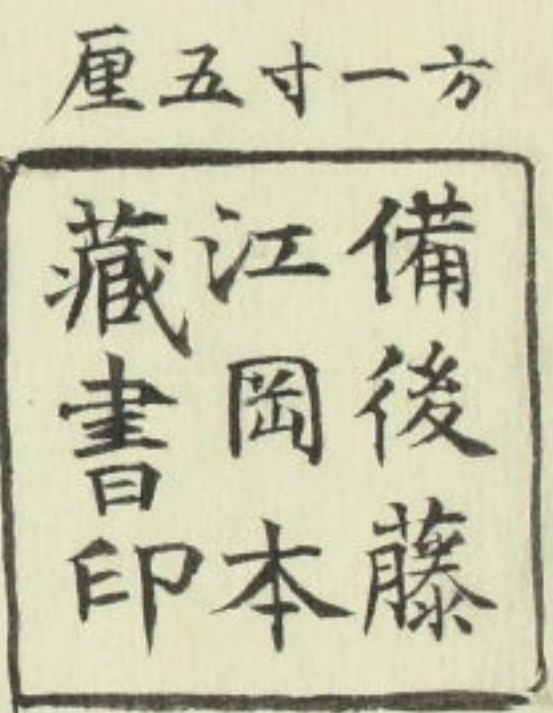 方一寸五厘
備後藤
江岡本
藏書印